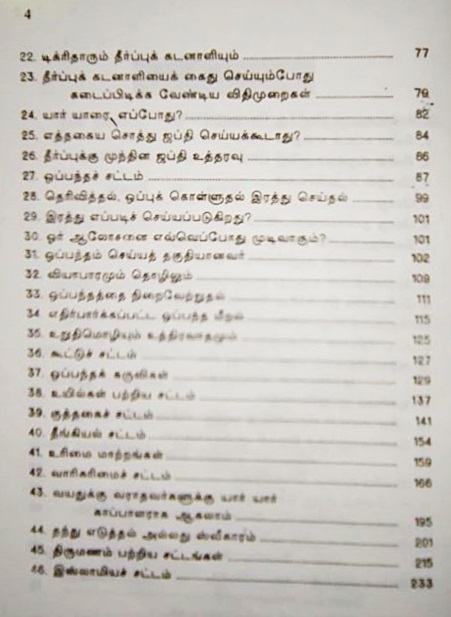 4
22. டிக்ரிதாரும் தீர்ப்புக் கடனாளியும் 77
23. தீர்ப்புக் கடனாளியைக் கைது செய்யும்போது
கடைப்பிடிக்க வேண்டிய விதிமுறைகள் 79
24. யார் யாரை, எப்போது? 82
25. எத்தகைய சொத்து ஜப்தி செய்யக்கூடாது? 84
26. தீர்ப்புக்கு முந்தின ஜப்தி உத்தரவு 86
27. ஒப்பந்தச் சட்டம் 87
28. தெரிவித்தல், ஒப்புக் கொள்ளுதல் இரத்து செய்தல் 99
29. இரத்து எப்படிச் செய்யப்படுகிறது? 101
30. ஓர் ஆலோசனை எவ்வெப்போது முடிவாகும்? 101
31. ஒப்பந்தம் செய்யத் தகுதியானவர் 102
32. வியாபாரமும் தொழிலும் 109
33. ஒப்பந்தத்தை நிறைவேற்றுதல் 111
34. எதிர்பார்க்கப்பட்ட ஒப்பந்த மீறல் 115
35. உறுதிமொழியும் உத்திரவாதமும் 125
36. கூட்டுச் சட்டம் 127
37. ஒப்பந்தக் கருவிகள் 129
38. உயில்கள் பற்றிய சட்டம் 137
39. குத்தகைச் சட்டம் 141
40. தீங்கியல் சட்டம் 154
41. உரிமை மாற்றங்கள் 159
42. வாரிசுரிமைச் சட்டம் 166
43. வயதுக்கு வராதவர்களுக்கு யார் யார்
காப்பாளராக ஆகலாம் 195
44. தத்து எடுத்தல் அல்லது ஸ்வீகாரம் 201
45. திருமணம் பற்றிய சட்டங்கள் 215
46. இஸ்லாமியச் சட்டம் 233